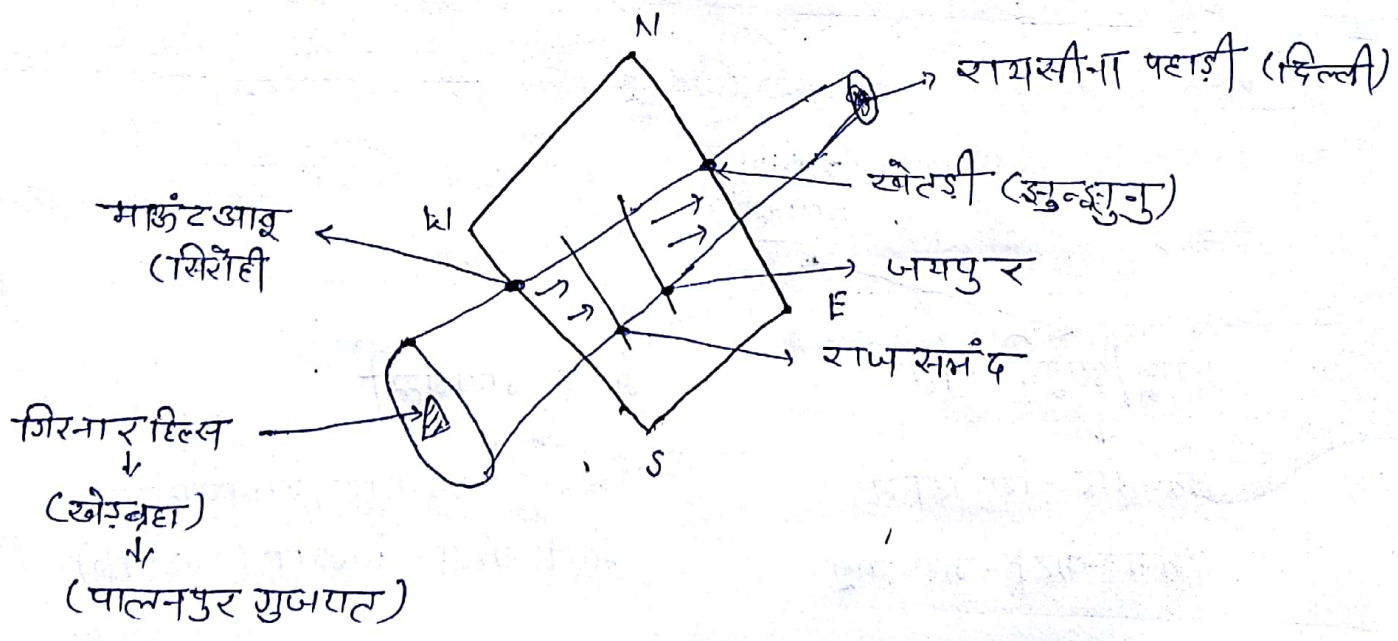 N
रायसीना पहाड़ी (दिल्ली)
खेतड़ी (झुन्झुनु)
माऊंटआबू
(सिरोही
W
जयपुर
E
राजसमंद
गिरनार हिल्स
(खेड़ब्रहा)
S
(पालनपुर गुजरात)